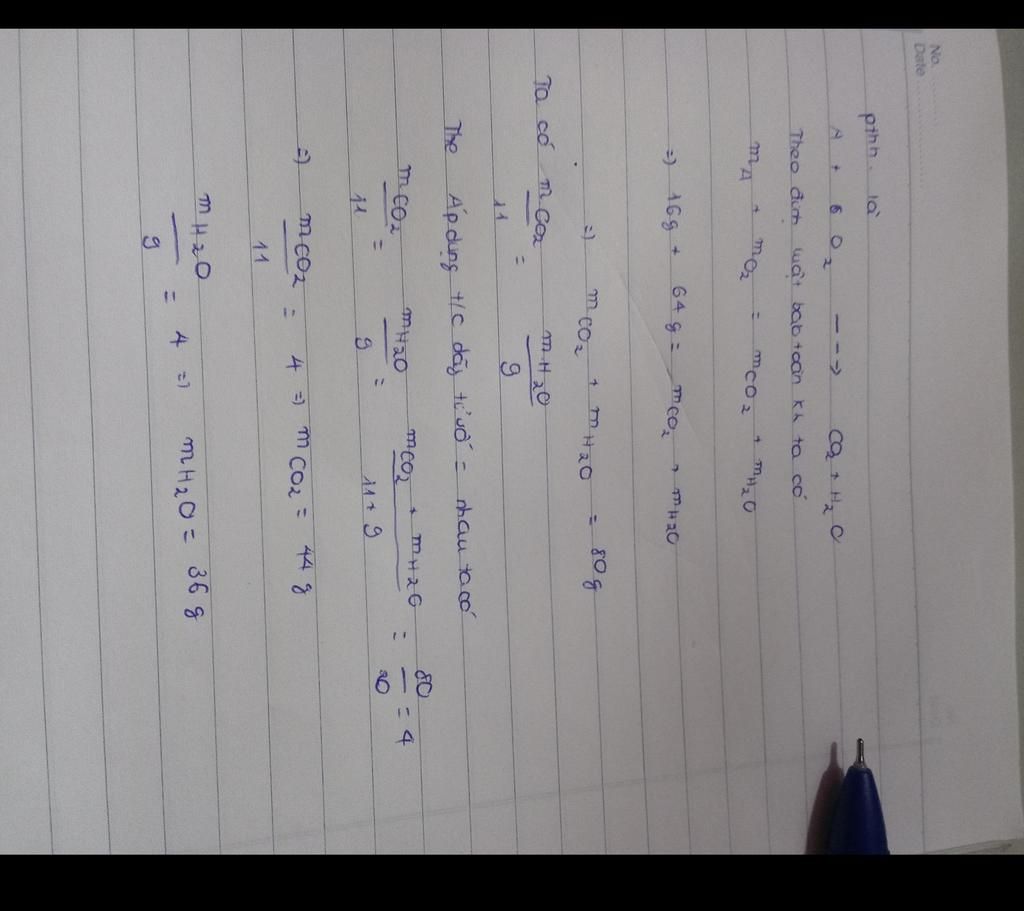 No. ............
Date ....................
pthh. là
A + 6 O2 ---> CO2 + H2O
Theo định luật bảo toàn kh ta có
mA + mO2 = mCO2 + mH2O
=) 16g + 64g = mCO2 + mH2O
=) mCO2 + mH2O = 80g
Ta có mCO2/11 = mH2O/9
Theo Áp dụng t/c dãy tỉ số = nhau ta có
mCO2/11 = mH2O/9 = mCO2 + mH2O/11+9 = 80/20 = 4
=) mCO2/11 = 4 =) mCO2 = 44 g
mH2O/9 = 4 =) mH2O = 36 g